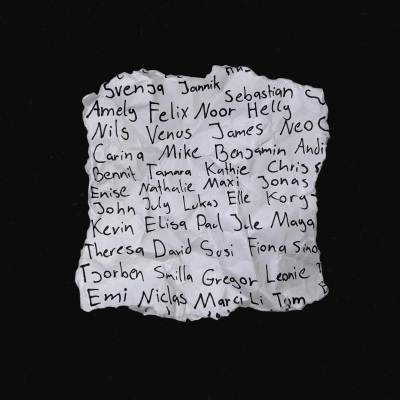 Svenja Jannik Sebastian
Amely Felix Noor Helly
Nils Venus James Neo
Carina Mike Benjamin Andi
Bennit Tamara Kathie Chris
Enise Nathalie Maxi Jonas
John July Lukas Elle Kory
Kevin Elisa Paul Jule Maya
Theresa David Susi Fiona
Tjorben Smilla Gregor Leonie
Emi Niclas Marci Li Tom